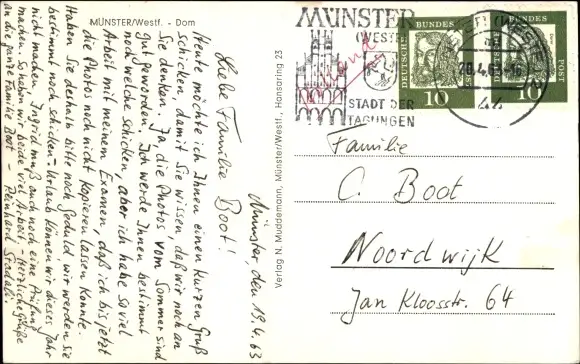 MÜNSTER/Westf. - Dom
Münster, den 19.4.63
Liebe Familie Boot!
Heute möchte ich Ihnen einen kurzen Gruß
schicken, damit Sie wissen daß wir noch an
Sie denken. Ja die Photos vom Sommer sind
gut geworden! Ich werde Ihnen bestimmt
noch welche schicken, aber ich habe so viel
Arbeit mit meinem Examen, daß ich bis jetzt
die Photos noch nicht kopieren lassen konnte.
Haben Sie deshalb bitte noch Geduld wir werden sie
bestimmt noch schicken - Urlaub können wir dieses Jahr
nicht machen. Ingrid muß auch noch eine Prüfung
machen. So haben wir beide viel Arbeit. - Herzliche Grüße
an die ganze Familie Boot -
Verlag N. Muddemann, Münster/Westf., Honsoring 23
MÜNSTER
(WESTF)
STADT DER
TAGUNGEN
Holland
DEUTSCHE BUNDESPOST
10
BUNDESPOST
10
44
Familie
C. Boot
Noordwijk
Jan Kloosstr. 64